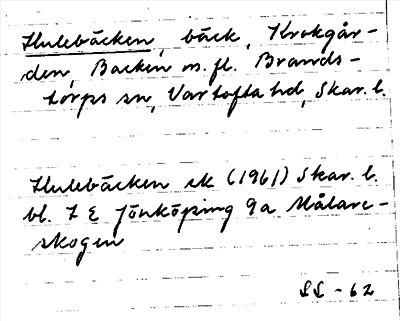 Hulebäcken, bäck, Krokgår-
den, Backen m.fl. Brands-
torps sn, Vartofta hd, Skar. l.
Hulebäcken ek (1961) Skar. l.
bl. 7 E Jönköping 9a Målare-
skogen
SL - 62